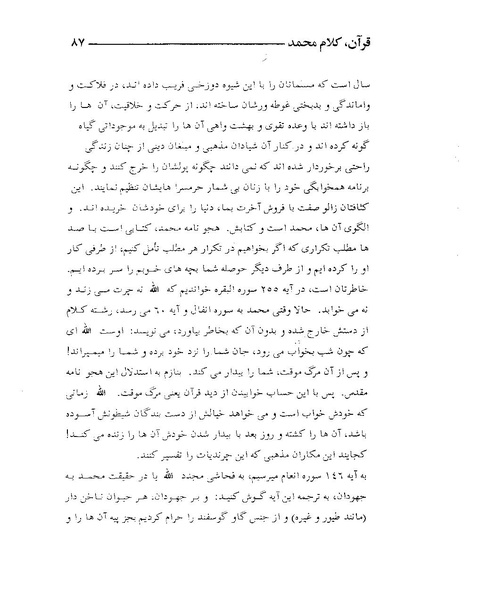 قرآن، کلام محمد ــــــــــــــــــــــــــــــــ ۸۷
سال است که مسلمانان را با این شیوه دوزخی فریب داده اند، در فلاکت و
واماندگی و بدبختی غوطه ورشان ساخته اند. از حرکت و خلاقیت، آن ها را
باز داشته اند با وعده تقوی و بهشت واهی آن ها را تبدیل به موجوداتی گیاه
گونه کرده اند و در کنار آن شیادان مذهبی و مبلغان دینی از چنان زندگی
راحتی برخوردار شده اند که نمی دانند چگونه پولشان را خرج کنند و چگونه
برنامه همخوابگی خود را با زنان بی شمار حرمسرا هایشان تنظیم نمایند. این
کثافتان زالو صفت با فروش آخرت بما، دنیا را برای خودشان خریده اند. و
الگوی آن ها، محمد است و کتابش. هجو نامه محمد، کتابی است با صد
ها مطلب تکراری که اگر بخواهیم در تکرار هر مطلب تأمل کنیم، از طرفی کار
او را کرده ایم و از طرف دیگر حوصله شما بچه های خوبم را سر برده ایم.
خاطرتان است، در آیه ۲۵۵ سوره البقره خواندیم که الله نه چرت می زند و
نه می خوابد. حالا وقتی محمد به سوره انفال و آیه ۶۰ می رسد، رشته کلام
از دستش خارج شده و بدون آن که بخاطر بیاورد، می نویسد: اوست الله ای
که چون شب بخواب می رود، جان شما را نزد خود برده و شما را میمیراند!
و پس از آن مرگ موقت، شما را بیدار می کند. بنازم به استدلال این هجو نامه
مقدس. پس با این حساب خوابیدن از دید قرآن یعنی مرگ موقت. الله زمانی
که خودش خواب است و می خواهد خیالش از دست بندگان شیطونش آسوده
باشد، آن ها را کشته و روز بعد با بیدار شدن خودش آن ها را زنده می کند!
کجایند این مکاران مذهبی که این چرندیات را تفسیر کنند.
به آیه ۱۴۶ سوره انعام میرسیم، به فحاشی مجدد الله یا در حقیقت محمد به
جهودان، به ترجمه این آیه گوش کنید: و بر جهودان، هر حیوان ناخن دار
(مانند طیور و غیره) و از جنس گاو گوسفند را حرام کردیم بجز پیه آن ها را و